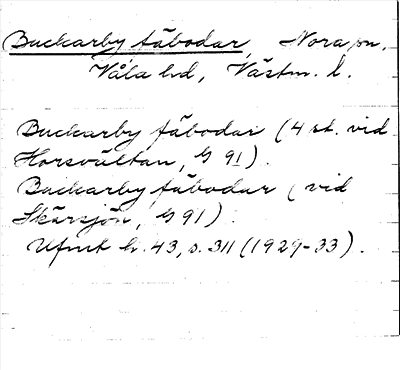 Buckarby fäbodar, Nora sn,
Våla hd, Västm. l.
Buckarby fäbodar (4 st. vid
Horsvältan, G 91).
Buckarby fäbodar (vid
Skärsjön, G 91).
Ufmt h. 43, s. 311 (1929-33).